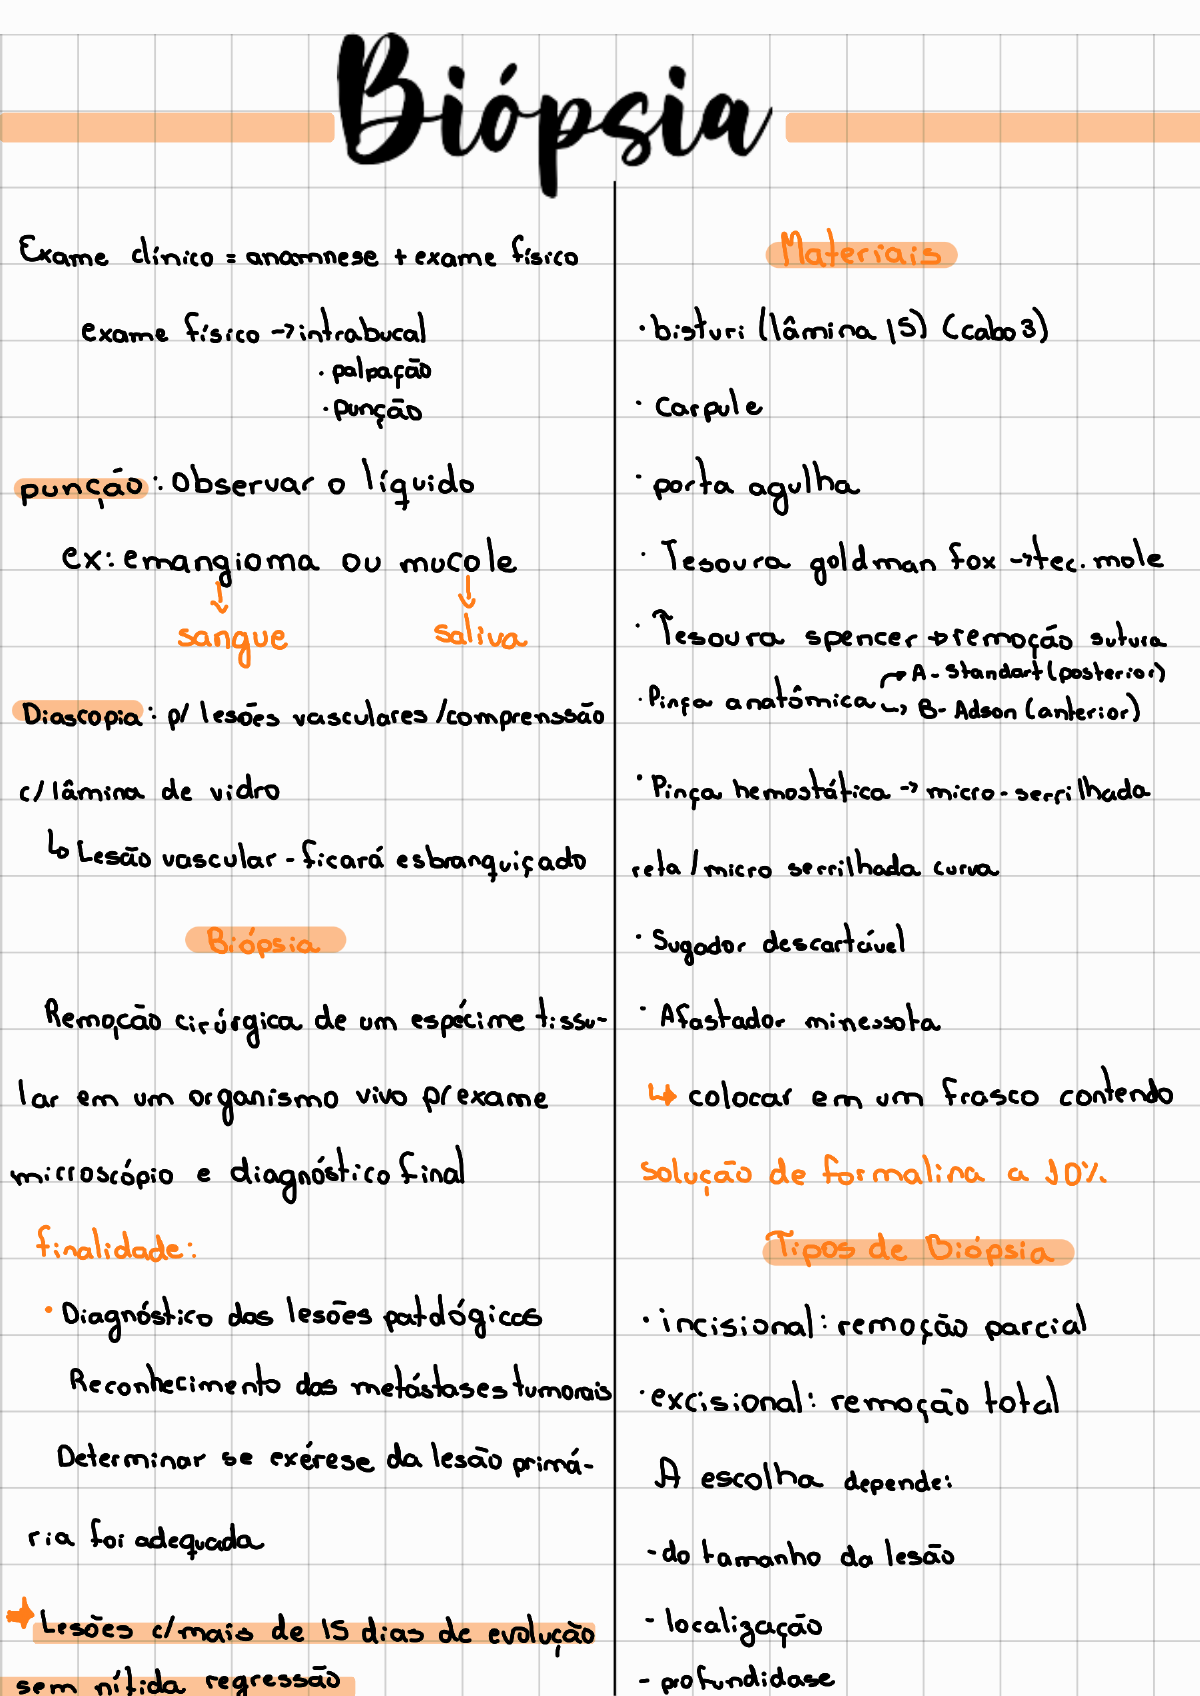 Biópsia
Exame clínico = anamnese + exame físico
exame físico → intrabucal
· palpação
· punção
punção: Observar o líquido
ex: emangioma ou mucole
↓ ↓
sangue saliva
Diascopia: p/ lesões vasculares /comprenssão
c/ lâmina de vidro
↳ Lesão vascular - ficará esbranquiçado
Biópsia
Remoção cirúrgica de um espécime tissu-
lar em um organismo vivo p/ exame
microscópio e diagnóstico final
finalidade:
· Diagnóstico das lesões patológicas
Reconhecimento das metástases tumorais
Determinar se exérese da lesão primá-
ria foi adequada
➡ Lesões c/ mais de 15 dias de evolução
sem nítida regressão
Materiais
· bisturi (lâmina 15) (cabo 3)
· Carpule
· porta agulha
· Tesoura goldman fox → tec. mole
· Tesoura spencer → remoção sutura
· Pinça anatômica → A - Standart (posterior)
↳ B - Adson (anterior)
· Pinça hemostática → micro-serrilhada
reta / micro serrilhada curva
· Sugador descartável
· Afastador minessota
↳ colocar em um frasco contendo
solução de formalina a 10%
Tipos de Biópsia
· incisional: remoção parcial
· excisional: remoção total
A escolha depende:
- do tamanho da lesão
- localização
- profundidase